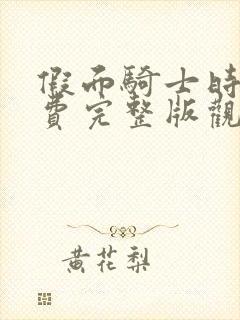 假而騎士時
費完整版觀
黃花梨